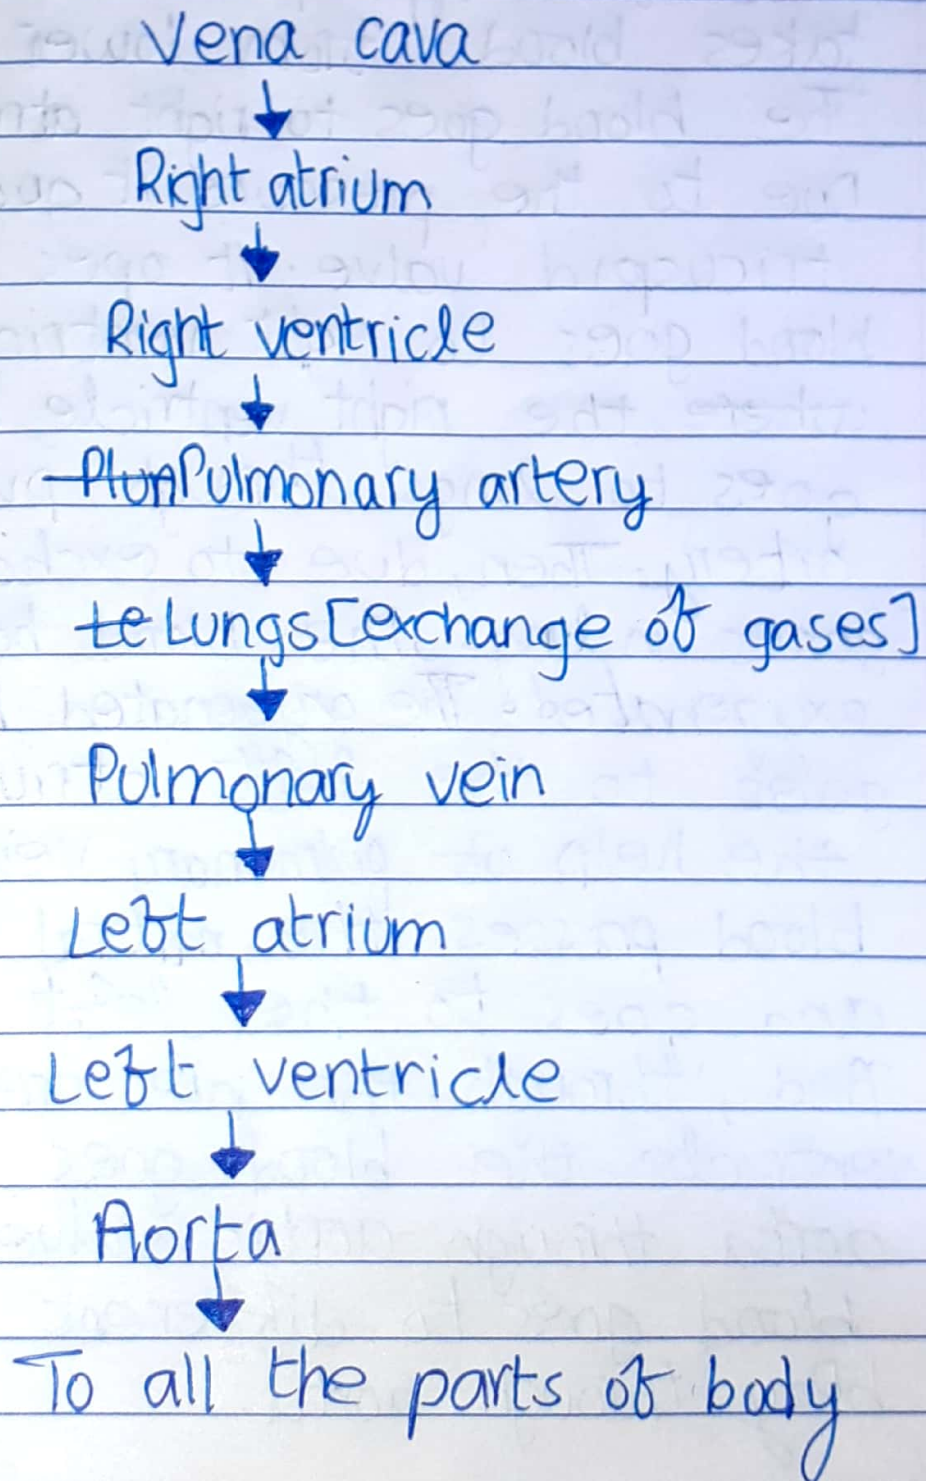 Vena cava
↓
Right atrium
↓
Right ventricle
↓
Pulmonary artery
↓
Lungs [exchange of gases]
↓
Pulmonary vein
↓
Left atrium
↓
Left ventricle
↓
Aorta
↓
To all the parts of body